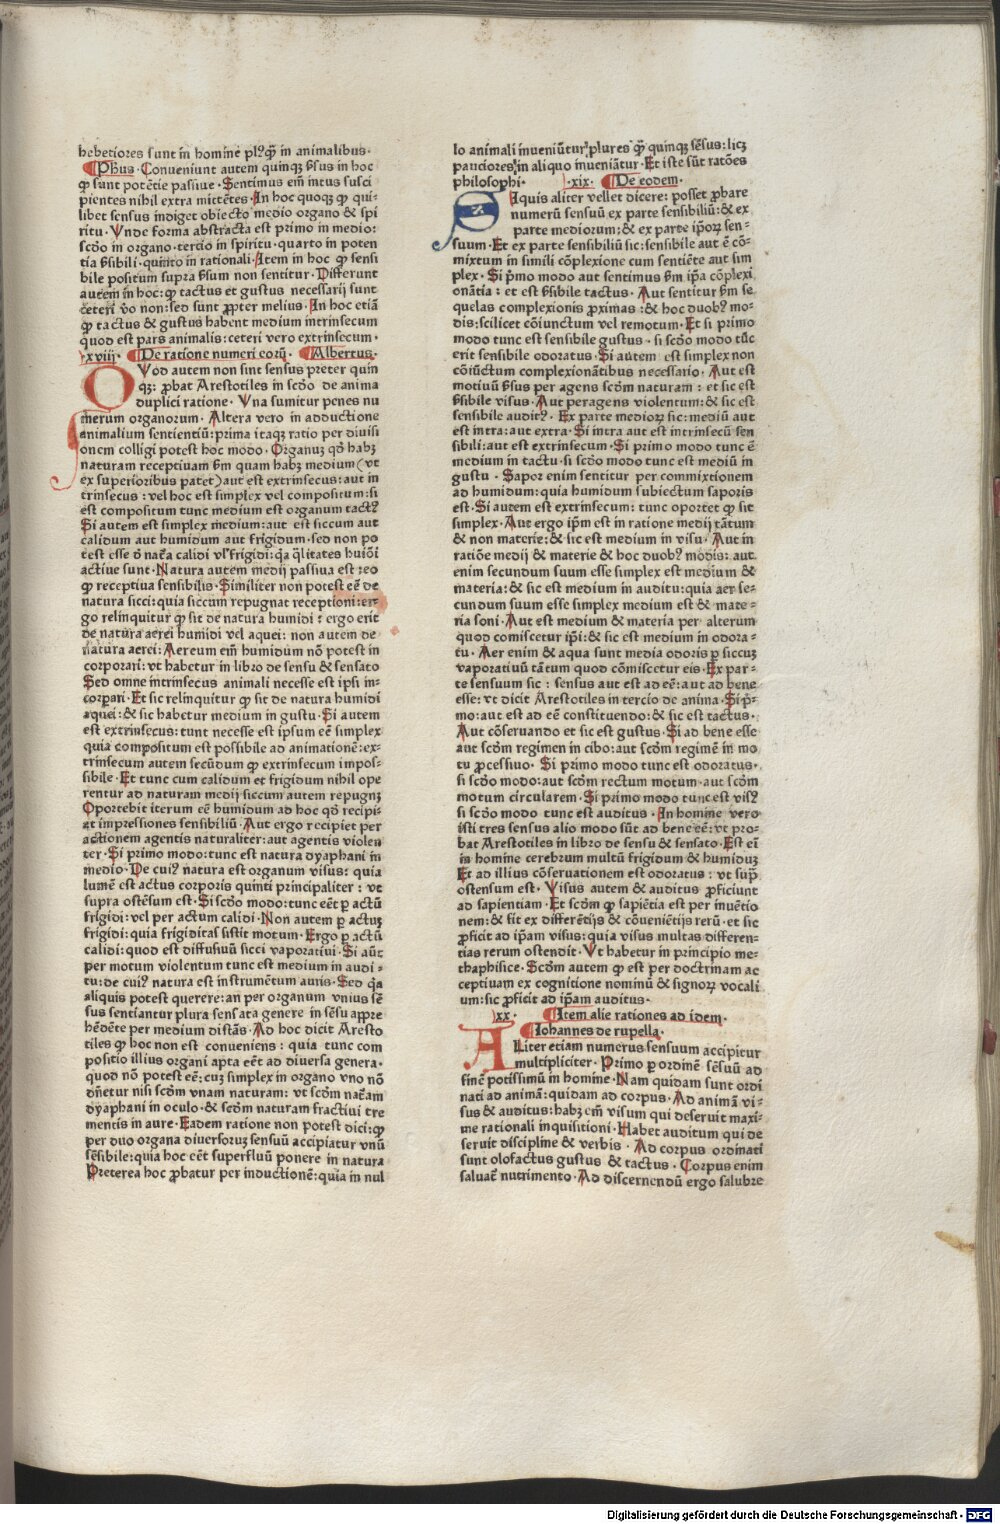 hebetiores sunt in homine plꝰqꝫ̄ in animalibus·
Pħus· Conueniunt autem quinqꝫ ẜsus in hoc
ꝙ sunt potētie passiue· Sentimus em̄ intus susci
pientes nihil extra mittētes· In hoc quoqꝫ ꝙ qui-
libet sensus indiget obiecto medio organo & spi
ritu· Vnde forma abstracta est primo in medio:
scd̄o in organo·tercio in spiritu·quarto in poten
tia ẜsibili·quinto in rationali·Item in hoc ꝙ sensi
bile positum supra ẜsum non sentitur· Differunt
autem in hoc:ꝙ tactus et gustus necessarij sunt
ceteri v̄o non:sed sunt ꝓpter melius· In hoc etiā
ꝙ tactus & gustus habent medium intrinsecum
quod est pars animalis:ceteri vero extrinsecum·
xviij· De ratione numeri eorū· Albertus·
QVod autem non sint sensus preter quin
qꝫ: ꝓbat Arestotiles in scd̄o de anima
duplici ratione· Vna sumitur penes nu
merum organorum· Altera vero in adductione
animalium sentientiū:prima itaqꝫ ratio per diuisi
onem colligi potest hoc modo· Organuꝫ qd̄ habꝫ
naturam receptiuam ẜm quam habꝫ medium(vt
ex superioribus patet)aut est extrinsecus:aut in
trinsecus: vel hoc est simplex vel compositum:si
est compositum tunc medium est organum tactꝰ
Si autem est simplex medium:aut est siccum aut
calidum aut humidum aut frigidum·sed non po
test esse d̄ nat̄a calidi vl̓ frigidi:q̄a q̄litates huiōi
actiue sunt·Natura autem medij passiua est:eo
ꝙ receptiua sensibilis·Similiter non potest eē de
natura sicci:quia siccum repugnat receptioni:er-
go relinquitur ꝙ sit de natura humidi: ergo erit
de natura aerei humidi vel aquei: non autem de
natura aerei: Aereum em̄ humidum nō potest in
corporari: vt habetur in libro de sensu & sensato
Sed omne intrinsecus animali necesse est ipsi in-
corpo̓ari·Et sic relinquitur ꝙ sit de natura humidi
aquei:& sic habetur medium in gustu·Si autem
est extrinsecus:tunt necesse est ipsum eē simplex
quia compositum est possibile ad animationē:ex-
trinsecum autem secūdum ꝙ extrinsecum impos-
sibile·Et tunc cum calidum et frigidum nihil ope
rentur ad naturam medij siccum autem repugnꝫ
Oportebit iterum eē humidum ad hoc qd̄ recipi-
at impressiones sensibiliū· Aut ergo recipiet per
actionem agentis naturaliter:aut agentis violen
ter·Si primo modo:tunc est natura dyaphani in
medio·De cuiꝰ natura est organum visus: quia
lumē est actus corporis quinti principaliter: vt
supra ostēsum est·Si scd̄o modo:tunc eēt ꝑ actū
frigidi:vel per actum calidi·Non autem ꝑ actuꝫ
frigidi:quia frigiditas sistit motum·Ergo ꝑ actū
calidi:quod est diffusiuū sicci vaporatiui·Si aūt
per motum violentum tunc est medium in audi-
tu:de cuiꝰ natura est instrumētum auris·Sed q̄a
aliquis potest querere:an per organum vnius sē
sus sentiantur plura sensata genere in sēsu appre
hēdēte per medium distās·Ad hoc dicit Aresto
tiles ꝙ hoc non est conueniens: quia tunc com
positio illius organi apta eēt ad diuersa genera·
quod nō potest eē: cuꝫ simplex in organo vno nō
dn̄etur nisi scd̄m vnam naturam: vt scd̄m nat̄am
dyaphani in oculo·& scd̄m naturam fractiui tre
mentis in aure·Eadem ratione non potest dici:ꝙ
per duo organa diuersoruꝫ sensuū accipiatur vnū
sēsibile:quia hoc eēt superfluū ponere in natura
Preterea hoc ꝓbatur per inductionē:quia in nul
lo animali inueniūtur plures qꝫ̄ quinqꝫ sēsus:licꝫ
pauciores in aliquo inueniātur·Et iste sūt ratōes
philosophi· ·xix· De eodem·
SIquis aliter vellet dicere: posset ꝓbare
numerū sensuū ex parte sensibiliū:& ex
parte mediorum:& ex parte ip̄oꝝ sen-
suum·Et ex parte sensibiliū sic:sensibile aut ē cō-
mixtum in simili cōplexione cum sentiēte aut sim
plex·Si p̓mo modo aut sentimus ẜm ip̄a cōplexi
onātia: et est ẜsibile tactus· Aut sentitur ẜm se
quelas complexionis ꝓximas:& hoc duobꝰ mo-
dis:scilicet cōiunctum vel remotum·Et si primo
modo tunc est sensibile gustus· si scd̄o modo tūc
erit sensibile odoratus·Si autem est simplex non
cōiūctum complexionātibus necessario·Aut est
motiuū ẜsus per agens scd̄m naturam: et sic est
ẜsibile visus·Aut per agens violentum:& sic est
sensibile auditꝰ· Ex parte medioꝝ sic:mediū aut
est intra:aut extra·Si intra aut est intrinsecū sen
sibili:aut est extrinsecum·Si primo modo tunc ē
medium in tactu·si scd̄o modo tunc est mediū in
gustu· Sapor enim sentitur per commixtionem
ad humidum:quia humidum subiectum saporis
est·Si autem est extrinsecum: tunc oportet ꝙ sit
simplex·Aut ergo ip̄m est in ratione medij tātum
& non materie:& sic est medium in visu· Aut in
ratiōe medij & materie & hoc duobꝰ modis: aut
enim secundum suum esse simplex est medium &
materia:& sic est medium in auditu:quia aer se-
cundum suum esse simplex medium est & mate-
ria soni·Aut est medium & materia per alterum
quod comiscetur ip̄i:& sic est medium in odora-
tu·Aer enim & aqua sunt media odoris ꝑ siccuꝫ
vaporatiuū tātum quod cōmiscetur eis·Ex par-
te sensuum sic: sensus aut est ad eē:aut ad bene
esse:vt dicit Arestotiles in tercio de anima·Si p̓-
mo:aut est ad eē constituendo:& sic est tactus·
Aut cōseruando et sic est gustus·Si ad bene esse
aut scd̄m regimen in cibo:aut scd̄m regimē in mo
tu ꝓcessiuo· Si primo modo tunc est odoratus·
si scd̄o modo:aut scd̄m rectum motum·aut scd̄m
motum circularem·Si primo modo tunc est visꝰ
si scd̄o modo tunc est auditus·In homine vero
isti tres sensus alio modo sūt ad bene eē:vt pro-
bat Arestotiles in libro de sensu & sensato·Est em̄
in homine cerebrum multū frigidum & humiduꝫ
Et ad illius cōseruationem est odoratus: vt sup̄
ostensum est· Visus autem & auditus ꝓficiunt
ad sapientiam·Et scd̄m ꝙ sapiētia est per inuētio
nem:& fit ex differētijs & cōueniētijs rerū·et sic
ꝓficit ad ip̄am visus:quia visus multas differen-
tias rerum ostendit·Vt habetur in principio me-
thaphisice·Scd̄m autem ꝙ est per doctrinam ac
ceptiuam ex cognitione nominū & signoꝝ vocali
um:sic ꝓficit ad ip̄am auditus·
xx· Item alie rationes ad idem·
Iohannes de rupella·
ALiter etiam numerus sensuum accipitur
multipliciter·Primo ꝑ ordinē sēsuū ad
finē potissimū in homine·Nam quidam sunt ordi
nati ad animā:quidam ad corpus·Ad animā vi-
sus & auditus:habꝫ em̄ visum qui deseruit maxi-
me rationali inquisitioni·Habet auditum qui de
seruit discipline & verbis· Ad corpus ordinati
sunt olofactus gustus & tactus· Corpus enim
saluat̄ nutrimento·Ad discernendū ergo salubre
Digitalisierung gefördert durch die Deutsche Forschungsgemeinschaft - DFG